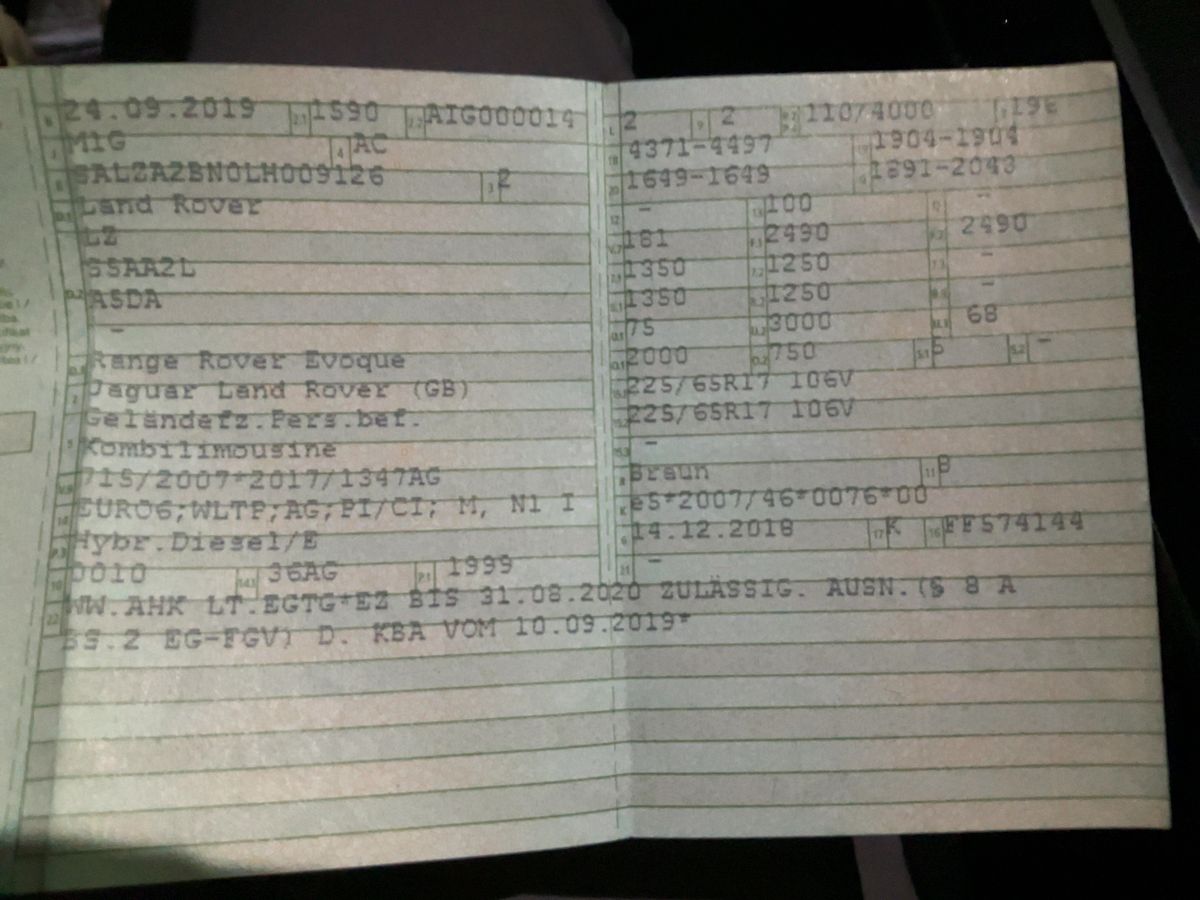 24.09.2019 2.1 1590 2.2 AIG000014
M1G 4 AC
SALZA2BN0LH009126 3 2
Land Rover
LZ
SSAA2L
D.2 ASDA
-
Range Rover Evoque
Jaguar Land Rover (GB)
Geländefz.Pers.bef.
Kombilimousine
715/2007*2017/1347AG
EURO6;WLTP;AG;PI/CI; M, N1 I
Hybr.Diesel/E
0010 14.1 36AG P.1 1999
2 9 2 110/4000
4371-4497 1904-1904
1649-1649 1891-2043
- 100 -
181 2490 2490
1350 1250 -
1350 1250 -
75 3000 68
2000 750 S.1 5 S.2 -
225/65R17 106V
225/65R17 106V
-
Braun 11 8
K e5*2007/46*0076*00
6 14.12.2018 17 K 16 FF574144
21 -
22 WW.AHK LT.EGTG*EZ BIS 31.08.2020 ZULÄSSIG. AUSN.(§ 8 A
BS.2 EG-FGV) D. KBA VOM 10.09.2019*